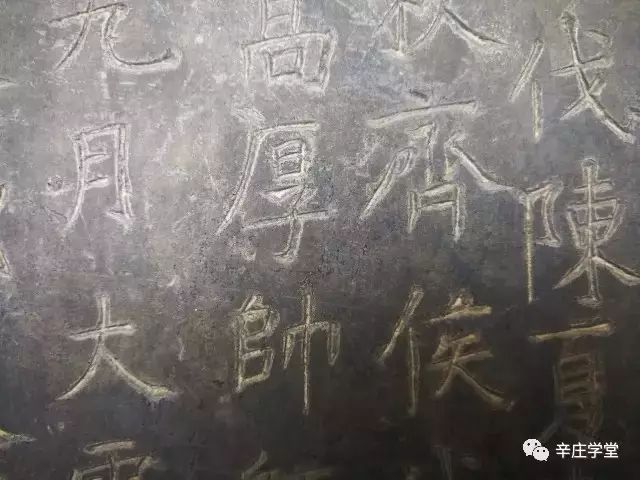 伐陳夏
秋齊侯
高厚帥
九月大
辛庄学堂